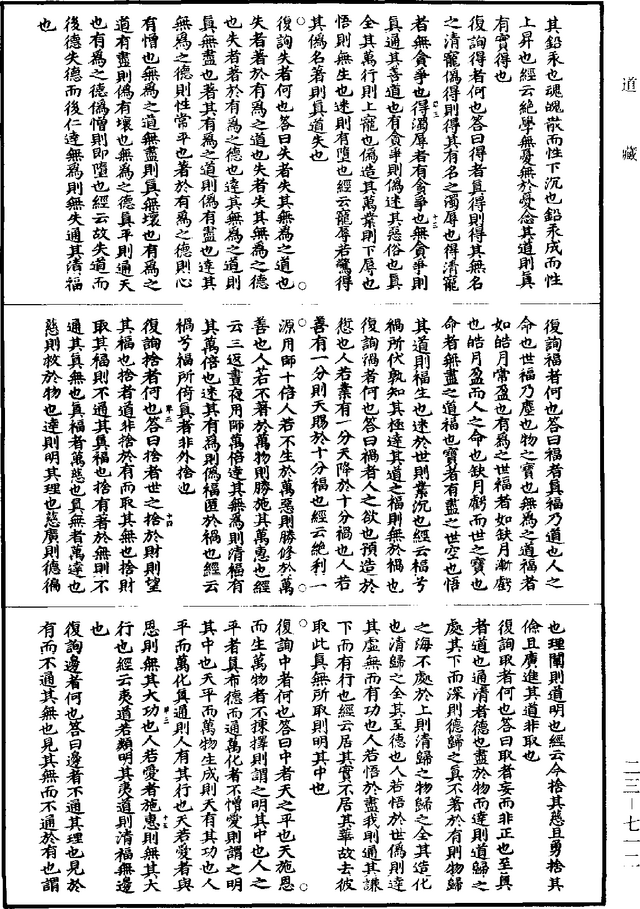 其鉛汞也魂魄散而性下沉也鉛汞成而性
上昇也經云絕學無憂無於憂念其道則真
有實得也
復詢得者何也答曰得者真得則得其無名
之清寵僞得則得其有名之濁辱也得清寵
者無貪爭也得濁辱者有貪爭也無貪爭則
真通其善道也有貪爭則僞迷其惡俗也真
全其萬行則上寵也僞造其萬業則下辱也
悟則無生也迷則有墮也經云寵辱若驚得
其僞名著則真道失也
復詢失者何也答曰失者失其無爲之道也
失者著於有爲之道也失者失其無爲之德
也失者著於有爲之德也達其無爲之道則
真無盡也著其有爲之道則僞有盡也達其
無爲之德則性常平也著於有爲之德則心
有憎也無爲之道無盡則真無壞也有爲之
道有盡則僞有壞也無爲之德真平則通天
也有爲之德僞憎則即墮也經云故失道而
後德失德而後仁達無爲則無失通其清福
也
復詢福者何也答曰福者真福乃道也人之
命也世福乃塵也物之寶也無爲之道福者
如皓月常盈也有爲之世福者如缺月漸虧
也皓月盈而人之命也缺月虧而世之寶也
命者無盡之道福也寶者有盡之世空也悟
其道則福生也迷於世則業沉也經云福兮
禍所伏孰知其極達其道之福則無於禍也
復詢禍者何也答曰禍者人之欲也預造於
愆也人若業有一分天降於十分禍也人若
善有一分則天賜於十分福也經云絕利一
源用師十倍人若不生於萬惡則勝修於萬
善也人若不著於萬物則勝施其萬惠也經
云三返晝夜用師萬倍達其無爲則清福有
其萬倍也迷其有爲則僞福匿於禍也經云
禍兮福所倚真者非外捨也
復詢捨者何也答曰捨者世之捨於財則望
其福也捨者道非捨於有而取其無也捨財
取其福則不通其真福也捨有著於無則不
通其真無也真福者萬慈也真無者萬達也
慈則救於物也達則明其理也慈廣則德徧
也理闡則道明也經云今捨其慈且勇捨其
儉且廣進其道非取也
復詢取者何也答曰取者妄而非正也至真
者道也通清者德也盡於物而達則道歸之
處其下而深則德歸之真不著於有則物歸
之海不處於上則清歸之物歸之全其造化
也清歸之全其至德也人若悟於世僞則達
其虛無而有功也人若悟於盡我則通其謙
下而有行也經云居其實不居其華故去彼
取此真無所取則明其中也
復詢中者何也答曰中者天之平也天施恩
而生萬物者不揀擇則謂之明其中也人之
平者真布德而通萬化者不憎愛則謂之明
其中也天平而萬物生成則天有其功也人
平而萬化真通則人有其行也天若愛者與
恩則無其大功也人若愛者施惠則無其大
行也經云夷道若纇明其夷道則清福無邊
也
復詢邊者何也答曰邊者不通其理也見於
有而不通其無也見其無而不通於有也謂
道藏
二三-七一二